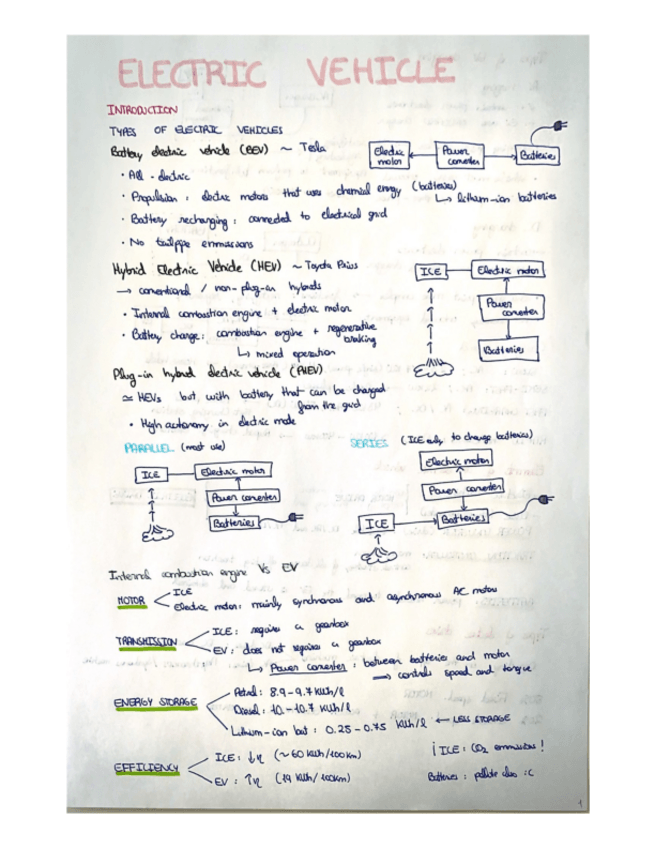 ELECTRIC VEHICLE
INTRODUCTION
TYPES OF ELECTRIC VEHICLES
Battery electric vehicle (BEV) ~ Tesla
Electric motor
Power converter
Batteries
· All - electric
· Propulsion : electric motors that uses chemical energy (batteries)
↳ lithium-ion batteries
· Battery recharging : connected to electrical grid
· No tailpipe emmissions
Hybrid Electric Vehicle (HEV) ~ Toyota Prius
ICE
Electric motor
Power converter
Batteries
→ conventional / non-plug-in hybrids
· Internal combustion engine + electric motor
· Battery charge : combustion engine + regenerative braking
↳ mixed operation
Plug-in hybrid electric vehicle (PHEV)
≃ HEVs but, with battery that can be charged from the grid
· High autonomy in electric mode
PARALLEL (most use)
SERIES (ICE only to charge batteries)
ICE
Electric motor
Power converter
Batteries
Electric motor
Power converter
Batteries
ICE
Internal combustion engine Vs EV
MOTOR
ICE
Electric motor : mainly synchronous and asynchronous AC motors
TRANSMISSION
ICE : requires a gearbox
EV : does not requires a gearbox
↳ Power converter : between batteries and motor
→ controls speed and torque
ENERGY STORAGE
Petrol : 8.9-9.7 kWh/l
Diesel : 10-10.7 kWh/l
Lithium-ion bat : 0.25-0.75 kWh/l ← LESS STORAGE
EFFICIENCY
ICE : ↓η (~60 kWh/100km)
EV : ↑η (19 kWh/100km)
¡ ICE : CO2 emmissions !
Batteries : pollute also :C
1